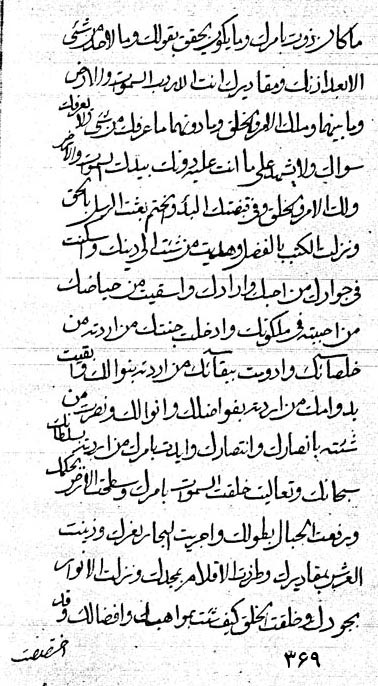 ما كان ذوت بامرك وما يكون يحقق بقولك وما لاحد من شئ
الا بعد اذنك ومقاديرك انت الا رب السموات والارض
وما بينهما وملك الامر والخلق وما دونهما ما عرفك من شئ ولا يعرفك
سواك ولا يشهد على ما انت عليه دونك بيدك السموات والارض
ولك الامر والخلق وفى قبضتك البدء والختم بعثت الرسل بالحق
ونزلت الكتب بالفضل وهديت من شئت الى دينك واسكنت
فى جوارك من احبك وارادك واسقيت من حياضك
من احببته فى ملكوتك وادخلت جنتك من اردته من
خلصائك وادومت ببقائك من اردته بنوالك وابقيت
بدوامك من اردته بفواضلك وانوالك ونصرت من
شئته بانصارك وانتصارك وايدت بامرك من اردته بسلطانك
سبحانك وتعاليت خلقت السموات بامرك وسطحت الارض بحكمك
ورفعت الجبال بطولك واجريت البحار بعزك وزينت
العرش بمقاديرك وطرزت الاقلام بمجدك ونزلت الانوار
بجودك وخلقت الخلق كيف شئت بمواهبك وافضالك وقد
اختصصت
۳۶۹